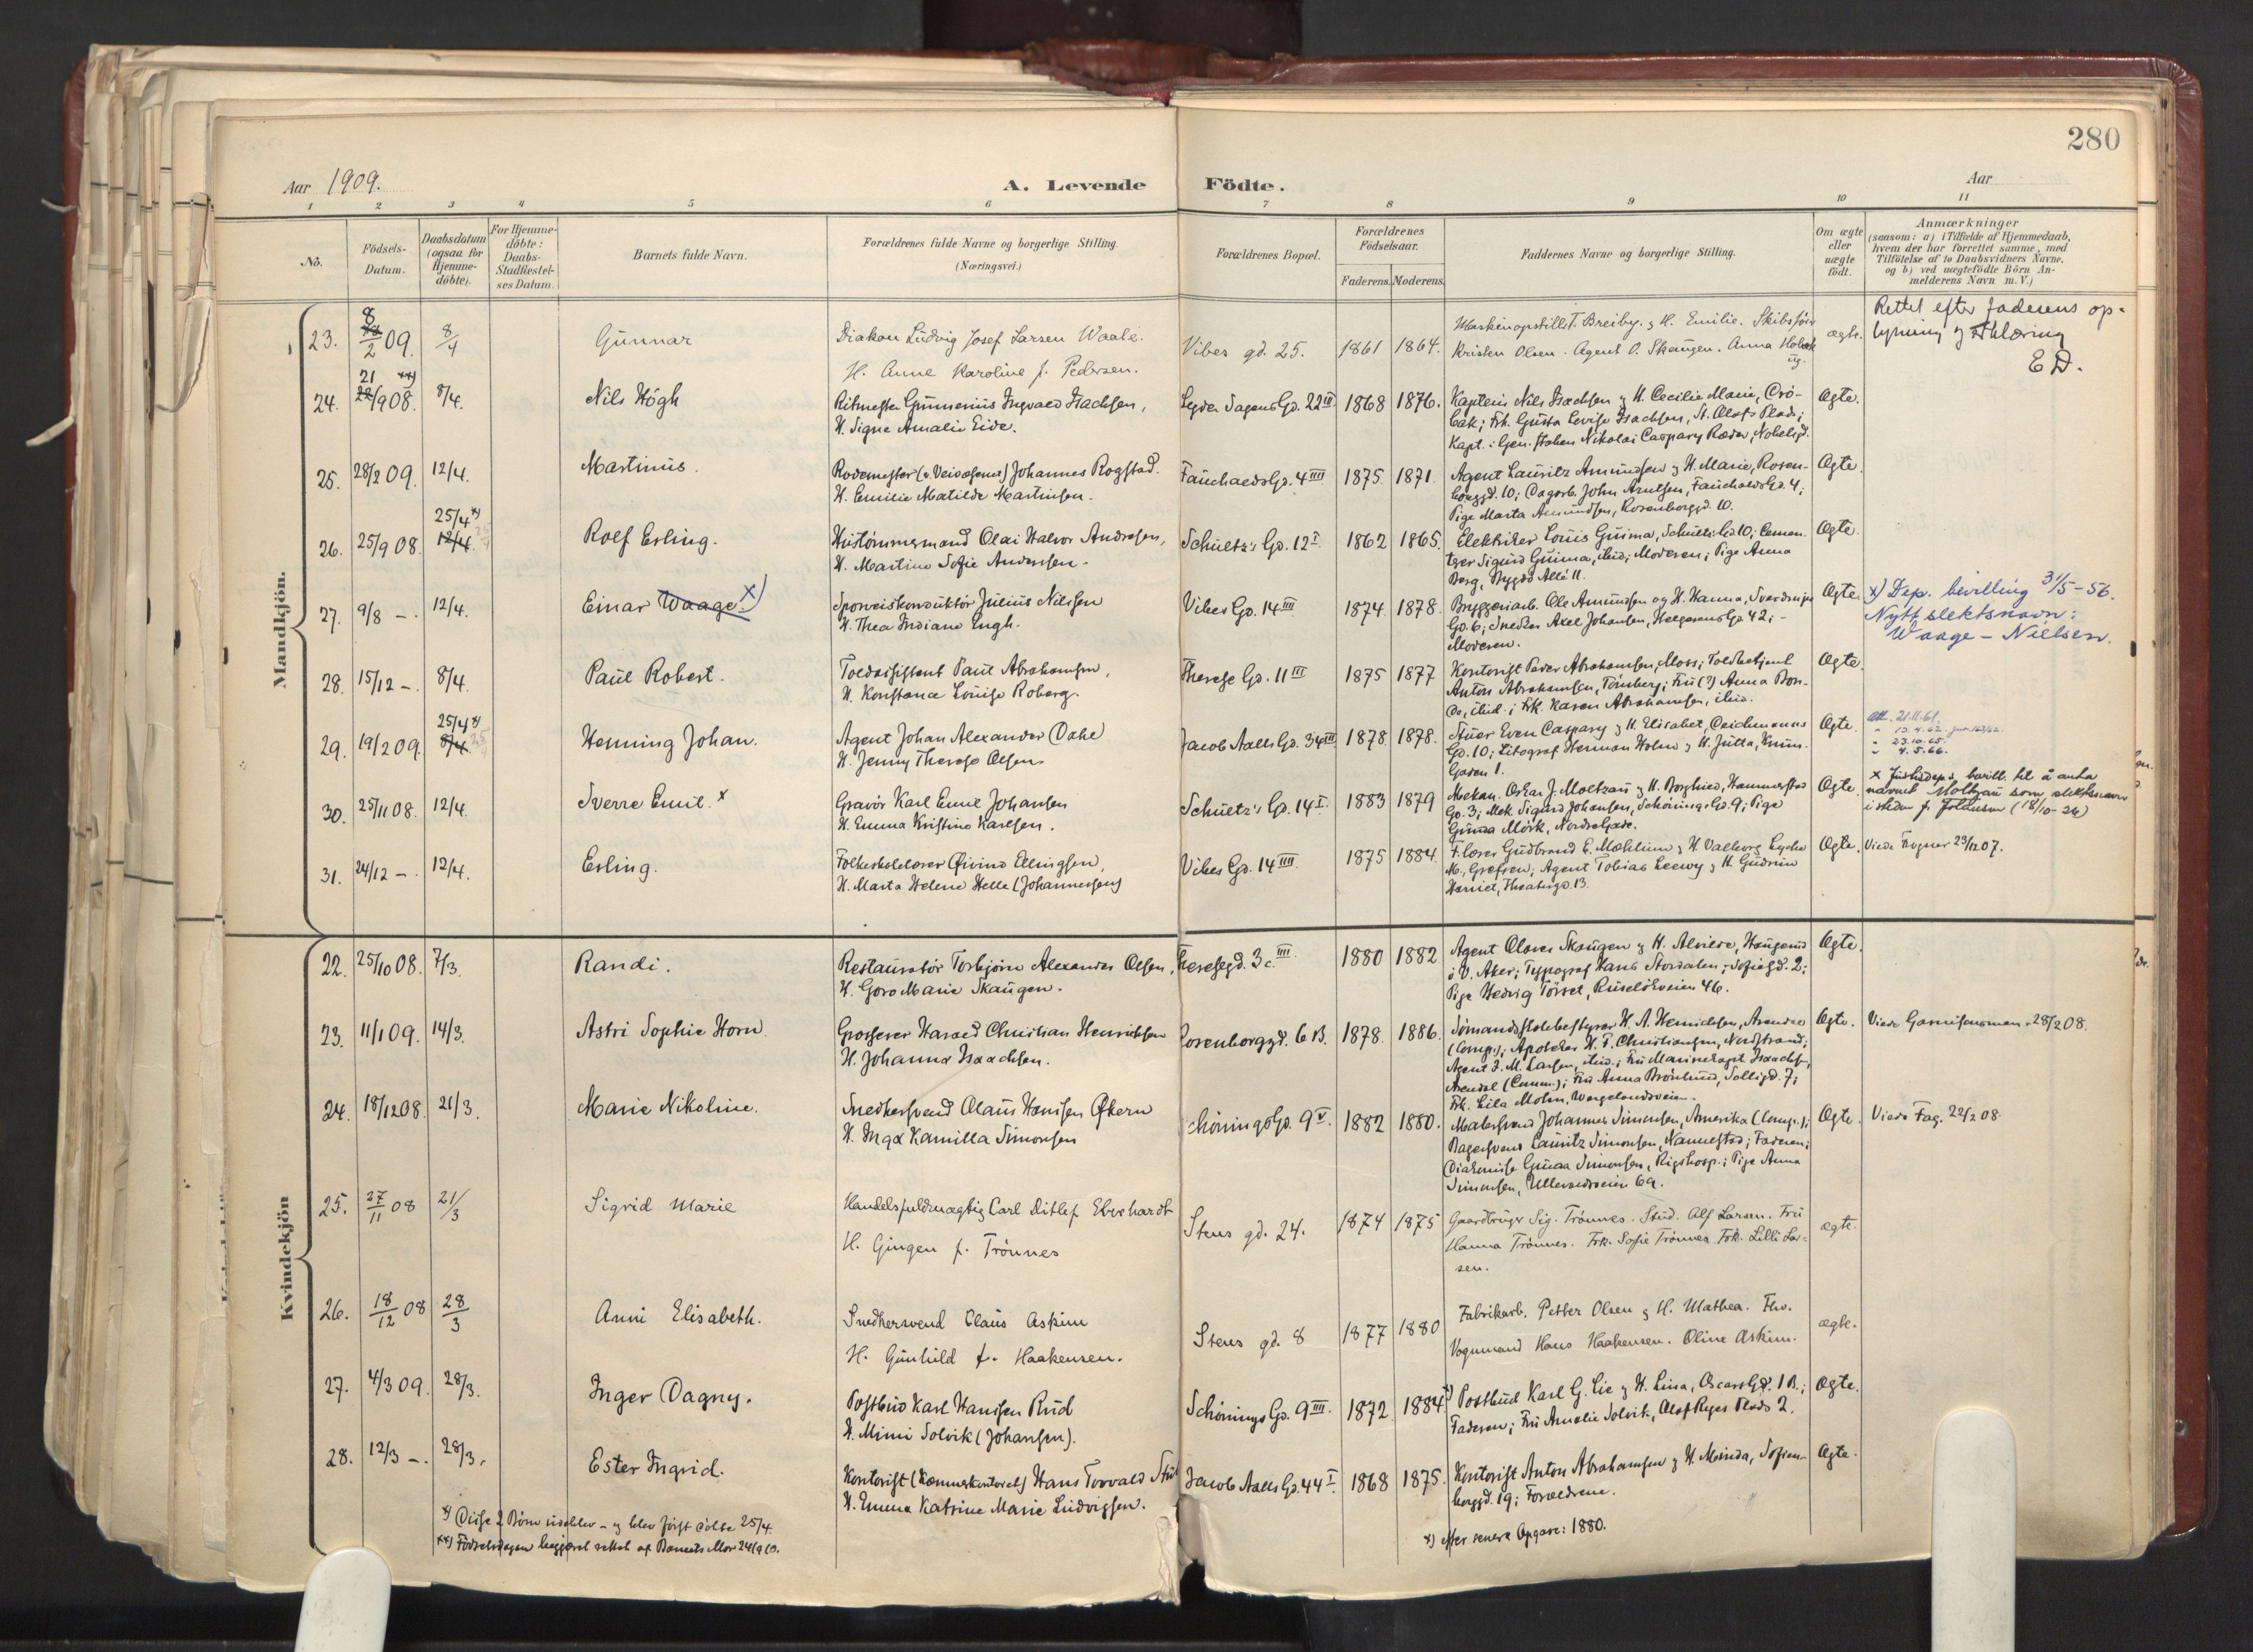 280
Aar 1909.
A. Levende Födte.
Aar
1 2 3 4 5 6 7 8 9 10 11
No.
Födsels-
Datum.
Daabsdatum
(ogsaa for
Hjemme-
döbte).
For Hjemme-
döbte:
Daabs-
Stadfæstel-
ses Datum.
Barnets fulde Navn.
Forældrenes fulde Navne og borgerlige Stilling.
(Næringsvei.)
Forældrenes Bopæl.
Forældrenes
Födselsaar.
Faderens. Moderens.
Faddernes Navne og borgerlige Stilling.
Om ægte
eller
uægte
födt.
Anmærkninger
(saasom: a) i Tilfælde af Hjemmedaab,
hvem der har forrettet samme, med
Tilföielse af to Daabsvidners Navne.
og b) ved uægtefödte Börn An-
melderens Navn m. V.)
Mandkjön.
23. 8/2 09. 8/4 Gunnar
Diakon Ludvig Josef Larsen Waale.
H. Anne Karoline f. Pedersen.
Vibes gd. 25. 1861 1864.
Maskinopstill. T. Breiby. & H. Emilie. Skibsför
Kristen Olsen. Agent O. Skaugen. Anna Holark
ug.
ægte.
Rettet efter faderens op-
lysning og erklæring
E D.
24. 21 **) 22/9 08. 8/4. Nils Högh
Ritmester Gunnerius Ingvald Isachsen,
H. Signe Amalie Eide.
Lyder Sagens Gd. 22 III 1868 1876.
Kaptein Nils Isachsen & H. Cecilie Marie, Drö-
bak; Frk. Gusta Lovise Isachsen, St. Olafs Plads;
Kapt. i Gen. staben Nikolai Caspary Ræder, Nobelsgd.
Ægte.
25. 28/2 09. 12/4. Martinus.
Rodemester (v. Veivæsenet) Johannes Rogstad.
H. Emilie Matilde Martinsen.
Fauchalds Gd. 4 IIII 1875. 1871.
Agent Lauritz Amundsen & H. Marie, Rosen-
borggd. 10; Dagarb. John Arntsen, Fauchalds Gd. 4;
Pige Marta Amundsen, Rosenborggd. 10.
Ægte.
26. 25/9 08. 25/4 *) 12/4. Rolf Erling.
Hustömmermand Olai Halvor Andresen,
H. Martine Sofie Andersen.
Schultz's Gd. 12 I 1862 1865.
Elektriker Louis Guima, Schultz Gd 10; Cemen-
törer Sigurd Guima, ibid; Moderen; Pige Anna
Berg, Bygdö Allé 11.
Ægte.
27. 9/8 –. 12/4. Einar Waage. x)
Sporveiskonduktör Julius Nilssen
H. Thea Indiane Engh.
Vibes Gd. 14 III 1874. 1878.
Bryggeriarb. Ole Amundsen og H. Hanna, Sverdrups
Gd. 6; Snedker Axel Johansen, Helgesens Gd 42; –
Moderen.
Ægte.
x) Dep. bevilling 31/5–56.
Nytt slektsnavn:
Waage – Nielsen.
28. 15/12 –. 8/4. Paul Robert.
Toldassistent Paul Abrahamsen,
H. Konstance Louise Roberg.
Therese Gd. 11 III 1875 1877
Kontorist Peder Abrahamsen, Moss; Toldbetjent
Anton Abrahamsen, Tönsberg; Fru (?) Anna Bon-
de, ibid.; Frk. Karen Abrahamsen, ibid.
Ægte.
29. 19/2 09. 25/4 *) 8/4. Henning Johan.
Agent Johan Alexander Dahl
H. Jenny Therese Olsen
Jacob Aalls Gd. 34 III 1878. 1878.
Stuer Even Caspary & H. Elisabet, Deichmanns
Gd. 10; Litograf Herman Holm & H. Jutta, Krum-
Gaden 1.
Ægte.
Att. 21.11.61.
" 23.10.65.
" 4.5.66.
30. 25/11 08. 12/4. Sverre Emil. x
Gravör Karl Emil Johansen
H. Emma Kristine Karlsen.
Schultz's Gd. 14 I. 1883 1879
Mekan. Oskar J. Moltzau & H. Borghild, Hammerstad
Gd. 3; Mek. Sigurd Johansen, Schönings Gd. 9; Pige
Gunda Mörk, Nordre Gade.
Ægte.
x Justisdep.s bevill. til å anta
navnet Moltzau som slektsnavn
istedenf. Johansen (18/10–26)
31. 24/12 –. 12/4. Erling.
Folkeskolelærer Øivind Ellingsen,
H. Marta Helene Helle (Johannessen)
Vibes Gd. 14 IIII. 1875 1884.
F.lærer Gudbrand E. Mæhlum & H. Valborg Lycke
M., Grefsen; Agent Tobias Leewy & H. Gudrun
Harriet, Theatergd. 13.
Ægte.
Viede Frogner 23/12 07.
Kvindekjön
22. 25/10 08. 7/3. Randi.
Restauratör Torbjörn Alexander Olsen,
H. Goro Marie Skaugen.
Theresegd. 3 c. IIII 1880 1882
Agent Olaves Skaugen & H. Alvilde, Haugerud
i V. Aker; Typograf Hans Stordalen, Sofiegd. 2;
Pige Hedvig Törset, Ruselökveien 46.
Ægte.
23. 11/1 09. 14/3. Astri Sophie Horn.
Grosserer Harald Christian Henrichsen
H. Johanna Isaachsen.
Rosenborggd. 6 B. 1878. 1886.
Sömandsskolebestyrer H. A. Henrichsen, Arendal
(Comp.); Apoteker H. T. Christiansen, Nordstrand;
Agent J. M. Larsen, ibid.; Fru Marinekapt. Isaachsen,
Arendal (Comm.); Fru Anna Brönlund, Solligd. 7;
Frk. Lila Mohn, Wergelandsveien.
Ægte.
Viede Garnisonsmen. 28/2 08.
24. 18/12 08. 21/3. Marie Nikoline.
Snedkersvend Olaus Hansen Økern
H. Inga Kamilla Simonsen
Schönings Gd. 9 V. 1882 1880.
Malersvend Johannes Simonsen, Amerika (Comp.);
Bagersvend Lauritz Simonsen, Nannestad; Faderen;
Diakonisse Gunda Simonsen, Rigshosp.; Pige Anna
Simonsen, Ullevoldsveien 69.
Ægte.
Viede Fag. 22/2 08.
25. 27/11 08 21/3 Sigrid Marie
Handelsfuldmægtig Carl Ditlef Eberhardt
H. Gingen f. Trönnes
Stens gd. 24. 1874 1875
Gaardbruger Sig. Trönnes. Stud. Alf Larsen. Fru
Hanna Trönnes. Frk. Sofie Trönnes. Frk. Lilli Lar-
sen.
ægte.
26. 18/12 08 28/3 Anni Elisabeth.
Snedkersvend Olaus Askim
H. Gunhild f. Haakensen.
Stens gd. 8 1877 1880
Fabrikarb. Petter Olsen & H. Mathea. Fhv.
Vognmand Hans Haakensen. Oline Askim.
ægte.
27. 4/3 09. 28/3. Inger Dagny.
Postbud Karl Hansen Rud
H. Mimi Solvik (Johansen).
Schönings Gd. 9 IIII. 1872 1884. *)
Postbud Karl G. Lie & H. Lina, Oscars Gd. 1 B.;
Faderen; Fru Amalie Solvik, Olaf Ryes Plads 2.
Ægte.
28. 12/3 –. 28/3. Ester Ingrid.
Kontorist (Kæmnerkontoret) Hans Torvald
H. Emma Katrine Marie Ludvigsen.
Jacob Aalls Gd. 44 I. 1868 1875.
Kontorist Anton Abrahamsen & H. Minda, Sofien-
berggd. 19; Forældrene.
Ægte.
*) Disse 2 Börn udeblev – og blev först döbte 25/4.
**) Födselsdagen begjært rettet af Barnets Mor 24/9 10.
*) efter senere Opgave: 1880.